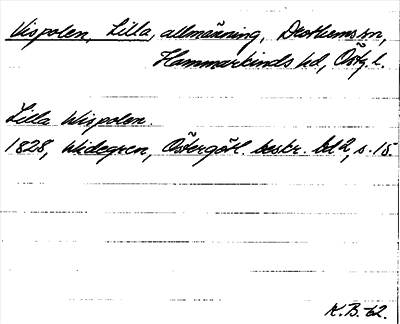 Vispolen, Lilla, allmänning, Drothems sn,
Hammarkinds hd, Östg. l.
Lilla Wispolen.
1828, Widegren, Östergötl. beskr. bd 2, s. 15.
K.B. 62.